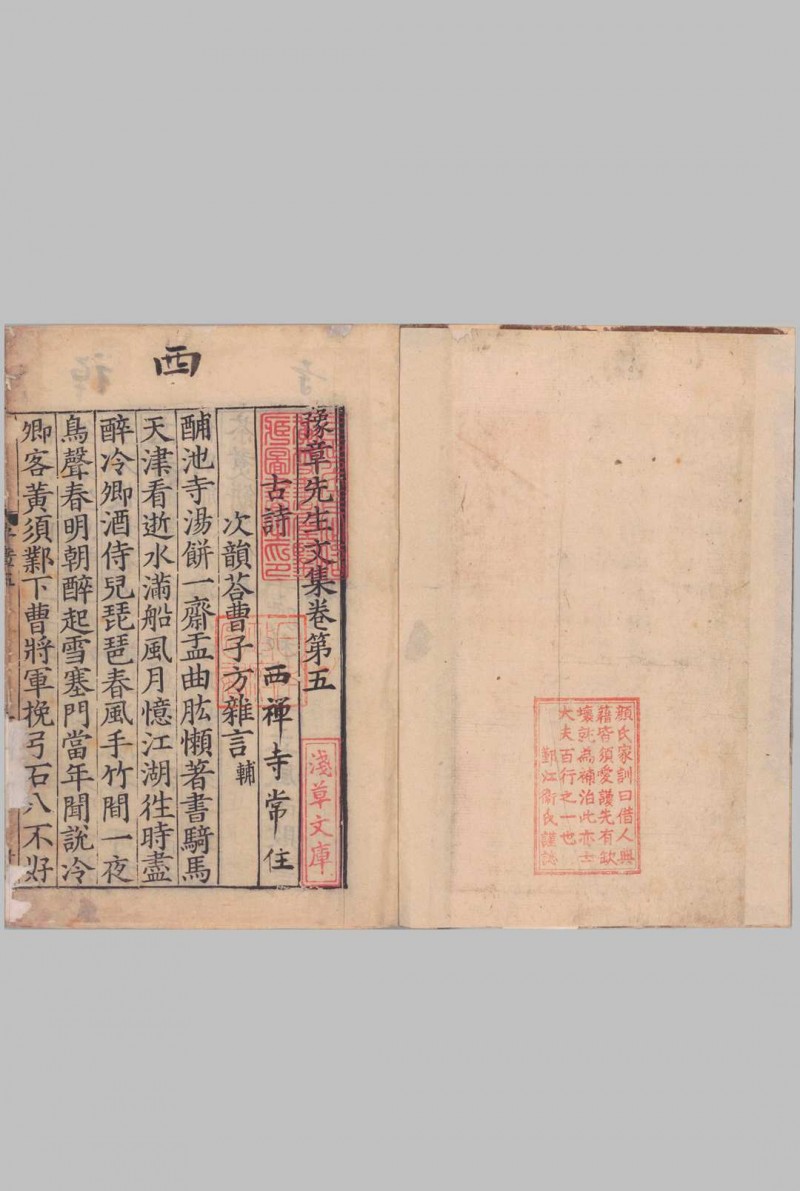 顔氏家訓曰借人典
藉皆須愛護先有缺
壞就為補治此亦士
大夫百行之一也
鄞江衞氏謹誌
西
豫章先生文集卷第五
淺草文庫
古詩
西禅寺常住
次韻荅曹子方雜言 輔
酺池寺湯餅一齋盂曲肱懶著書騎馬
天津看逝水滿船風月憶江湖徃時盡
醉冷卿酒侍兒琵琶春風手竹間一夜
鳥聲春明朝醉起雪塞門當年聞說冷
卿客黃須鄴下曹將軍挽弓石八不好